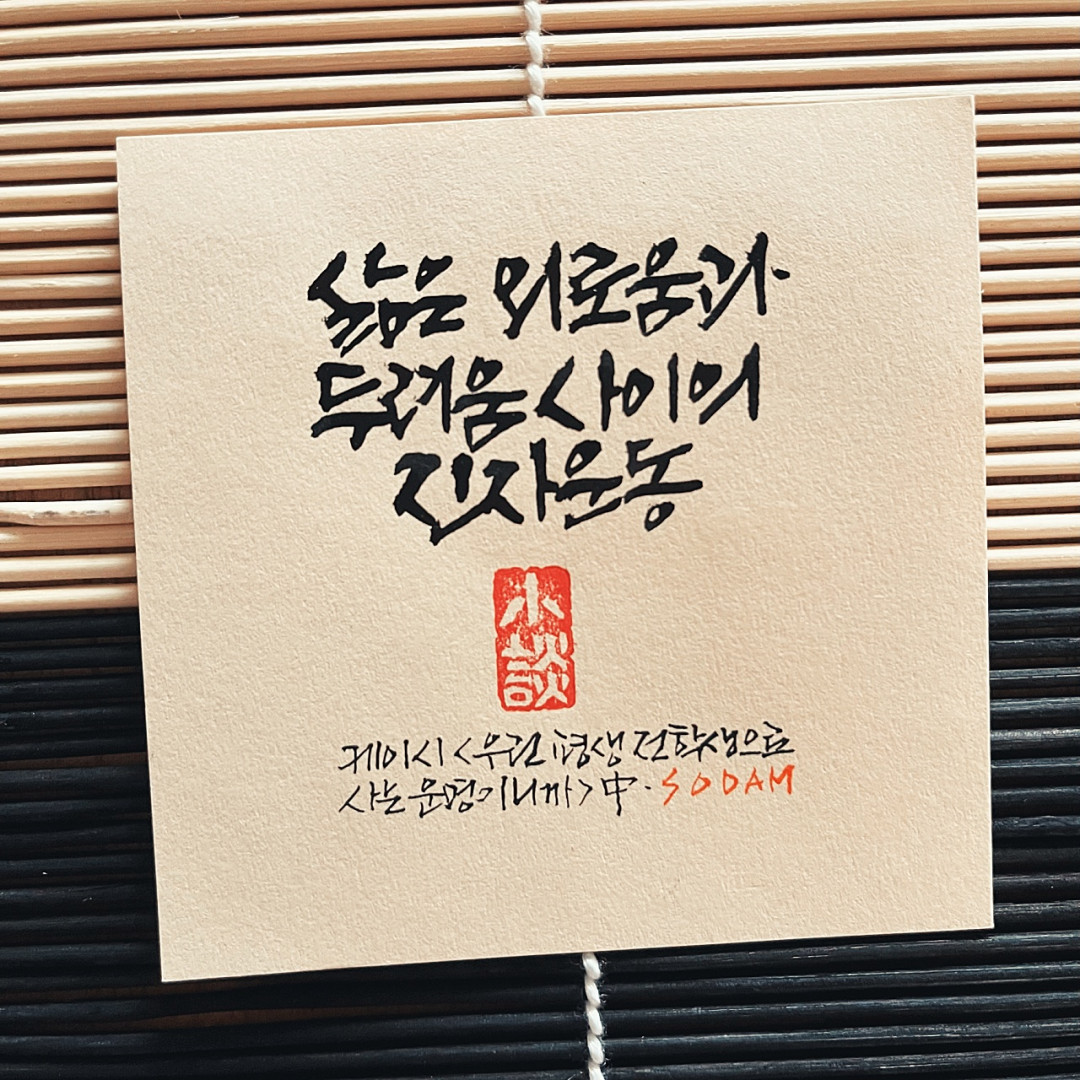 삶은 외로움과
두려움 사이의
진자운동
小談
케이시 <우린 평생 전학생으로
사는 운명이니까> 中. SODAM